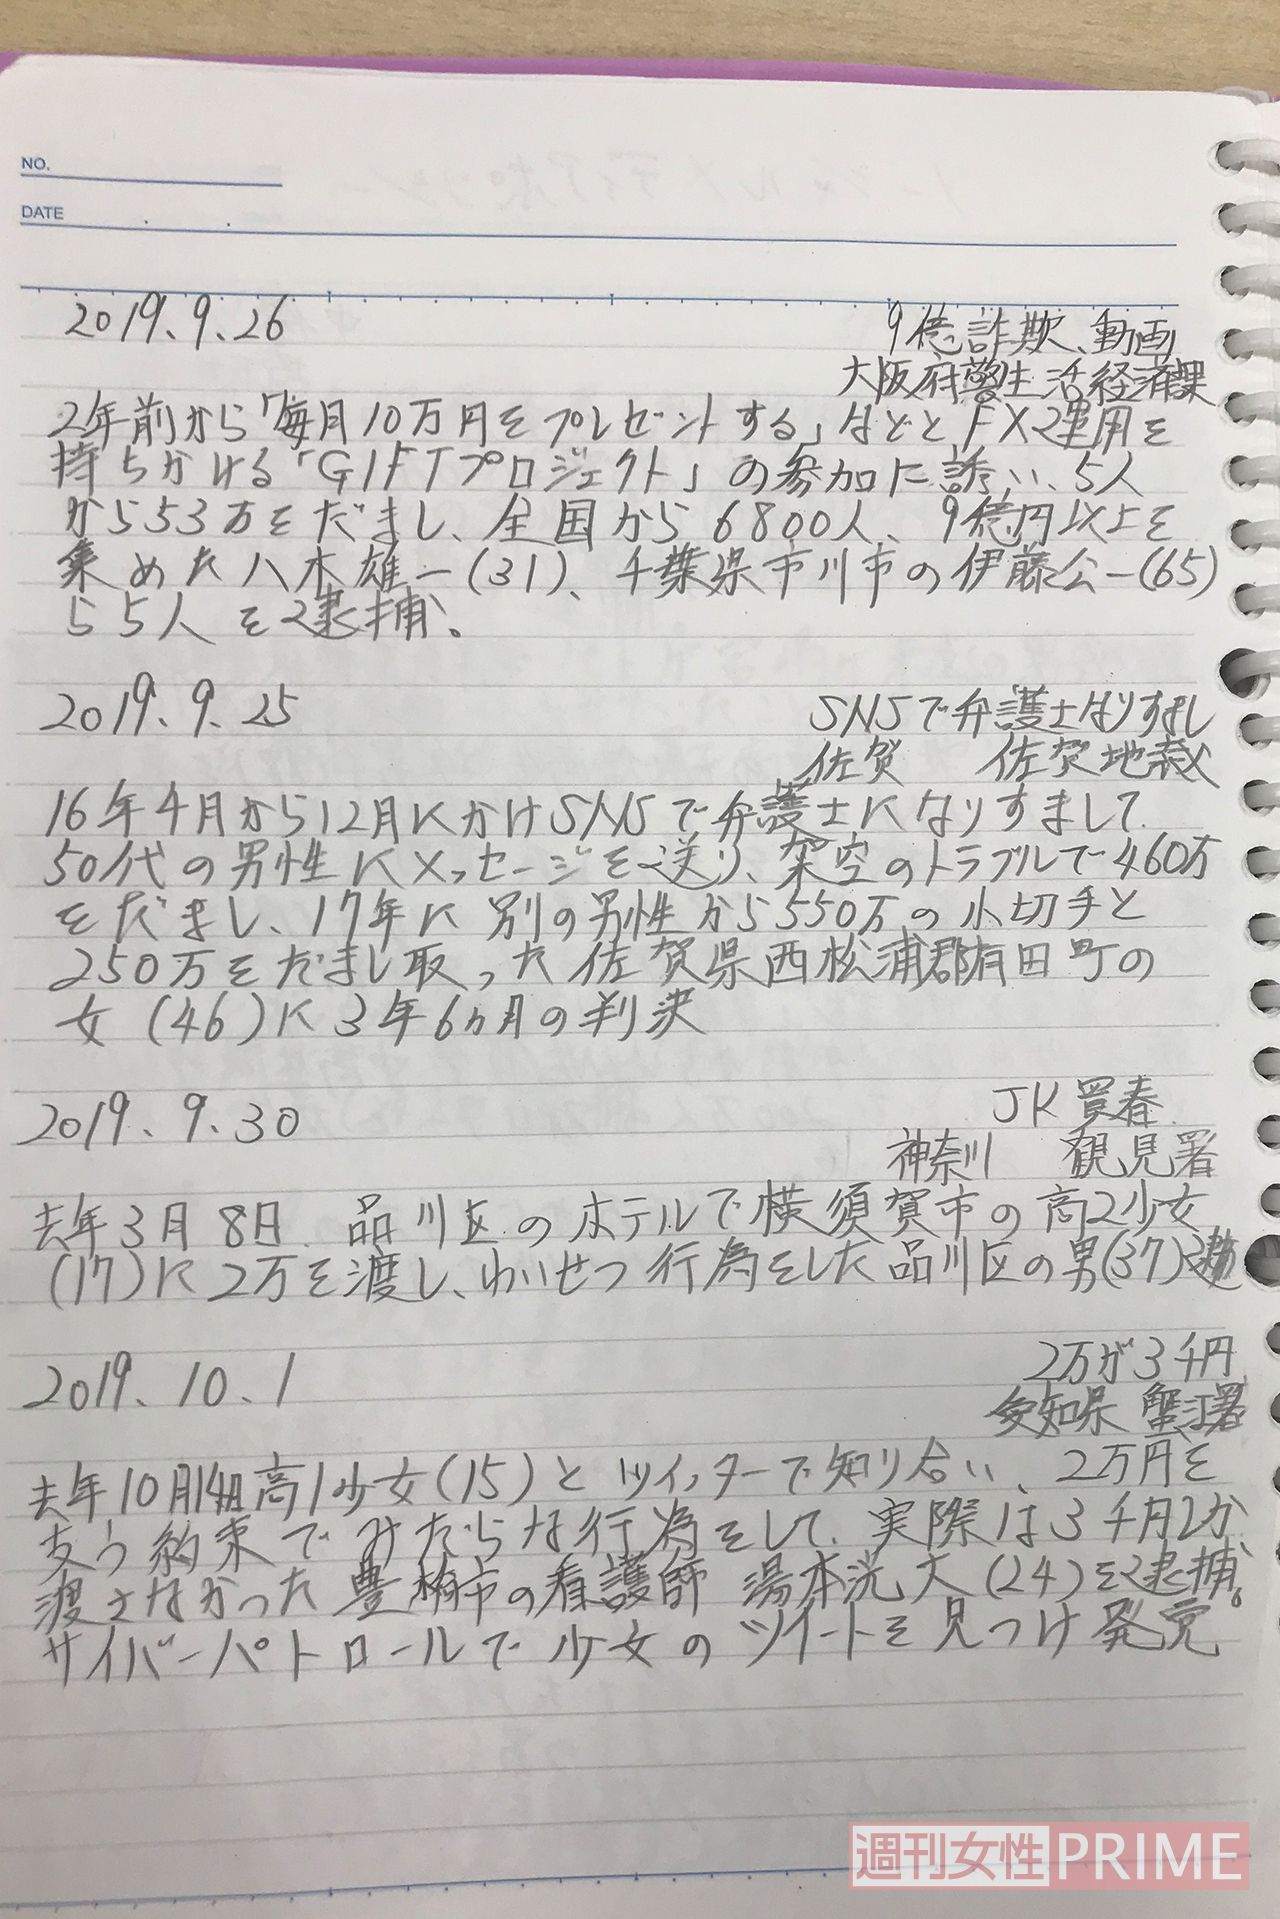 NO.
DATE
2019、9、26
9億詐欺、動画
大阪府警生活経済課
2年前から「毎月10万円をプレゼントする」などとFX運用を
持ちかける「GIFTプロジェクト」の参加に誘い、5人
から53万をだまし、全国から6800人、9億円以上を
集めた八木雄一(31)、千葉県市川市の伊藤公一(65)
ら5人を逮捕。
2019、9、25
SNSで弁護士なりすまし
佐賀 佐賀地裁
16年4月から12月にかけSNSで弁護士になりすまして
50代の男性にメッセージを送り、架空のトラブルで460万
をだまし、17年に別の男性から550万の小切手と
250万をだまし取った佐賀県西松浦郡有田町の
女(46)に3年6ヵ月の判決
2019、9、30
JK買春
神奈川 鶴見署
去年3月8日、品川区のホテルで横須賀市の高2少女
(17)に2万を渡し、わいせつ行為をした品川区の男(37)逮
2019、10、1
2万が3千円
愛知県 蟹江署
去年10月14日高1少女(15)とツイッターで知り合い、2万円を
支う約束でみだらな行為をして、実際は3千円しか
渡さなかった豊橋市の看護師 湯本洸大(24)を逮捕。
サイバーパトロールで少女のツイートを見つけ発覚
週刊女性PRIME